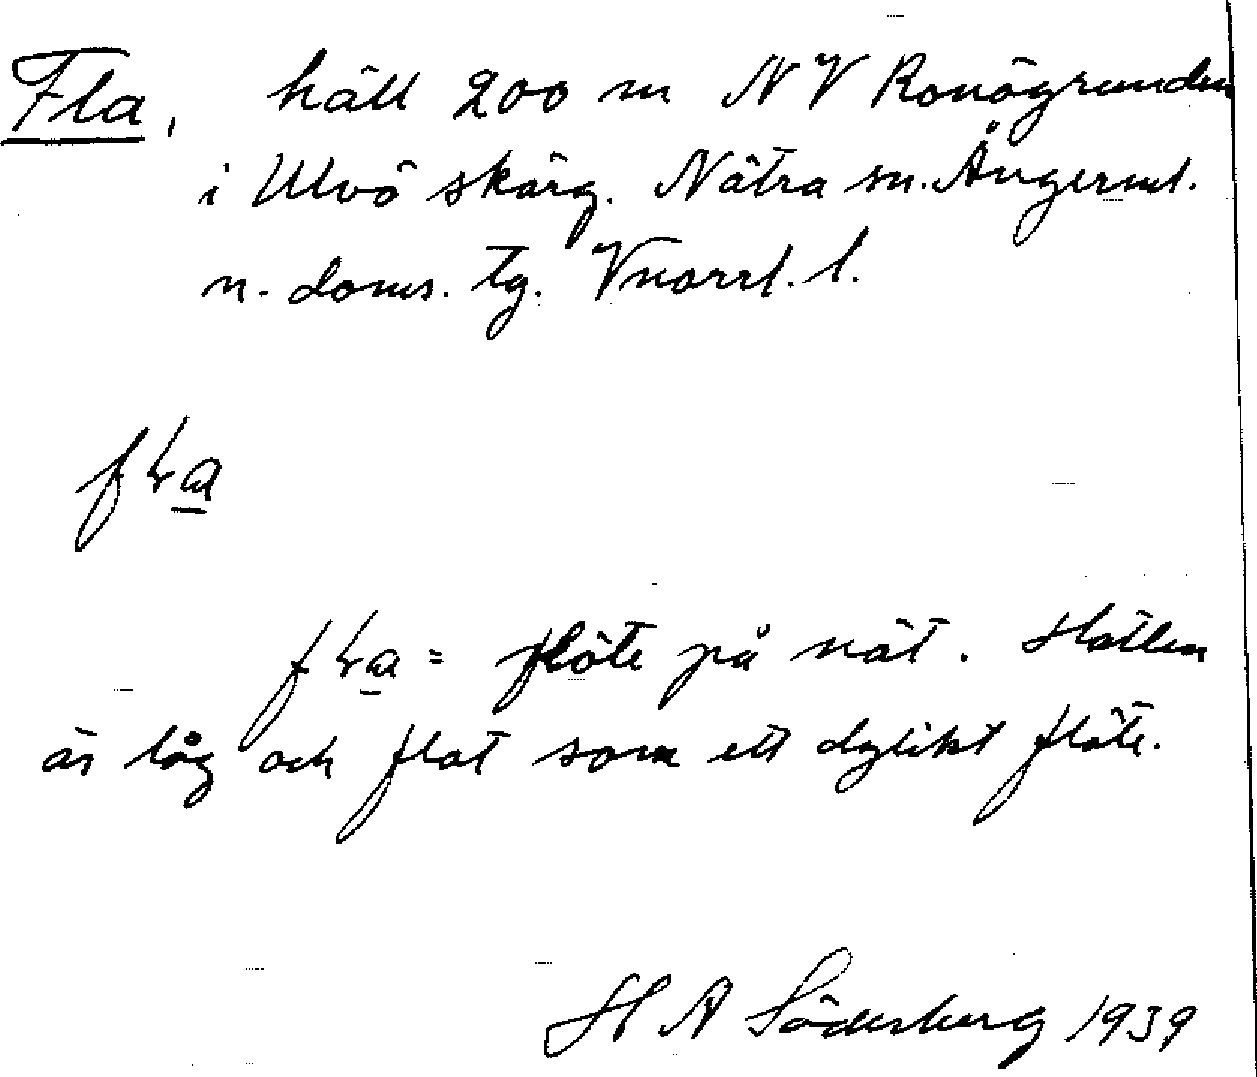 Fla, häll 200 m NV Ronögrunden
i Ulvö skärg. Nätra sn. Ångerml.
n. doms. tg. Vnorrl. l.
fla
fla = flöte på nät. Hällen
är låg och flat som ett dylikt flöte.
H A Söderberg 1939